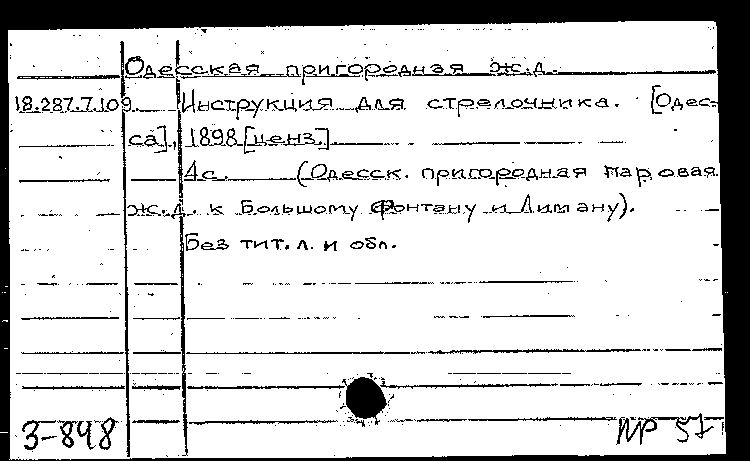 Одесская пригородная ж.д.
18.287.7.109. Инструкция для стрелочника. [Одес-
са], 1898 [ценз.]
4с. (Одесск. пригородная паровая
ж.д. к Большому Фонтану и Лиману).
Без тит. л. и обл.
3-848 МР 57